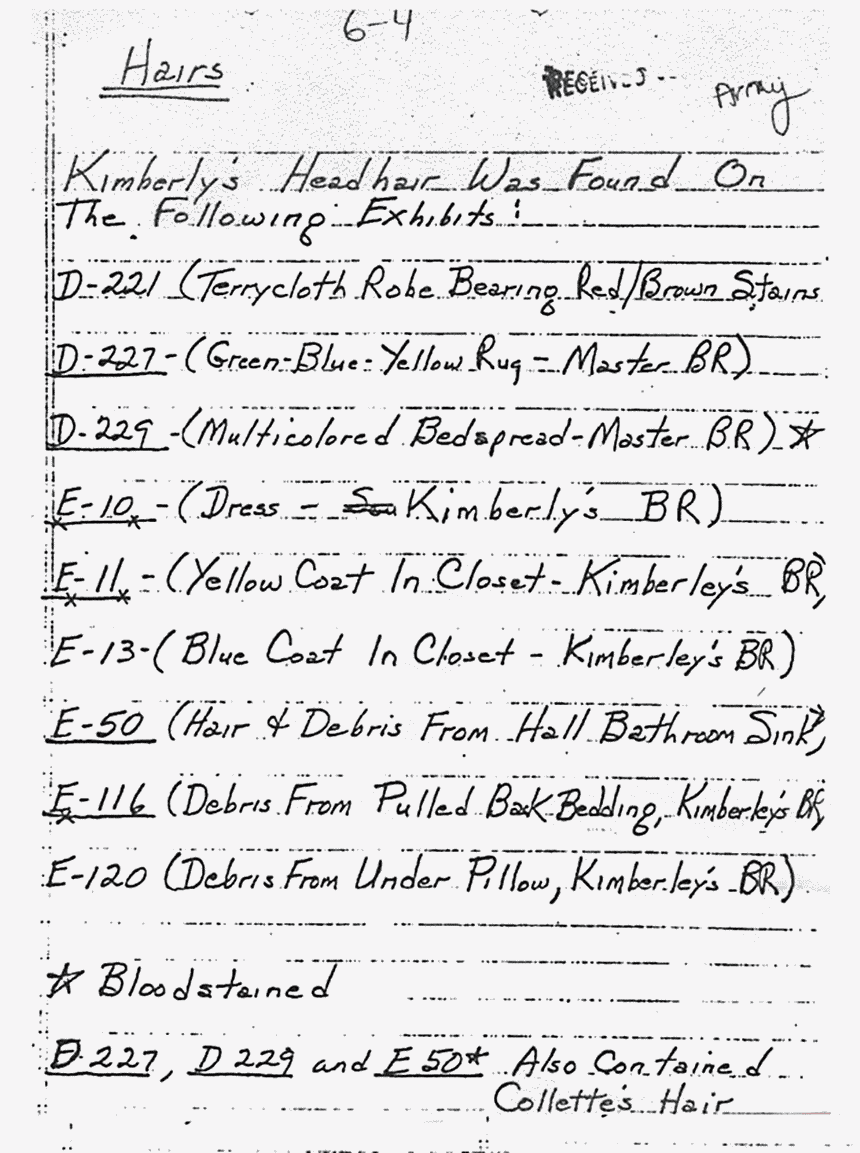 6-4
Hairs
Army
Kimberly's Headhair Was Found On
The Following Exhibits:
D-221 (Terrycloth Robe Bearing Red/Brown Stains
D-227-(Green-Blue-Yellow Rug - Master BR)
D-229-(Multicolored Bedspread-Master BR) ☆
E-10 - (Dress - Kimberly's BR)
E-11 - (Yellow Coat In Closet - Kimberley's BR)
E-13-(Blue Coat In Closet - Kimberley's BR)
E-50 (Hair & Debris From Hall Bathroom Sink)
E-116 (Debris From Pulled Back Bedding, Kimberley's BR)
E-120 (Debris From Under Pillow, Kimberley's BR)
☆ Bloodstained
D-227, D 229 and E 50* Also Contained
Collette's Hair